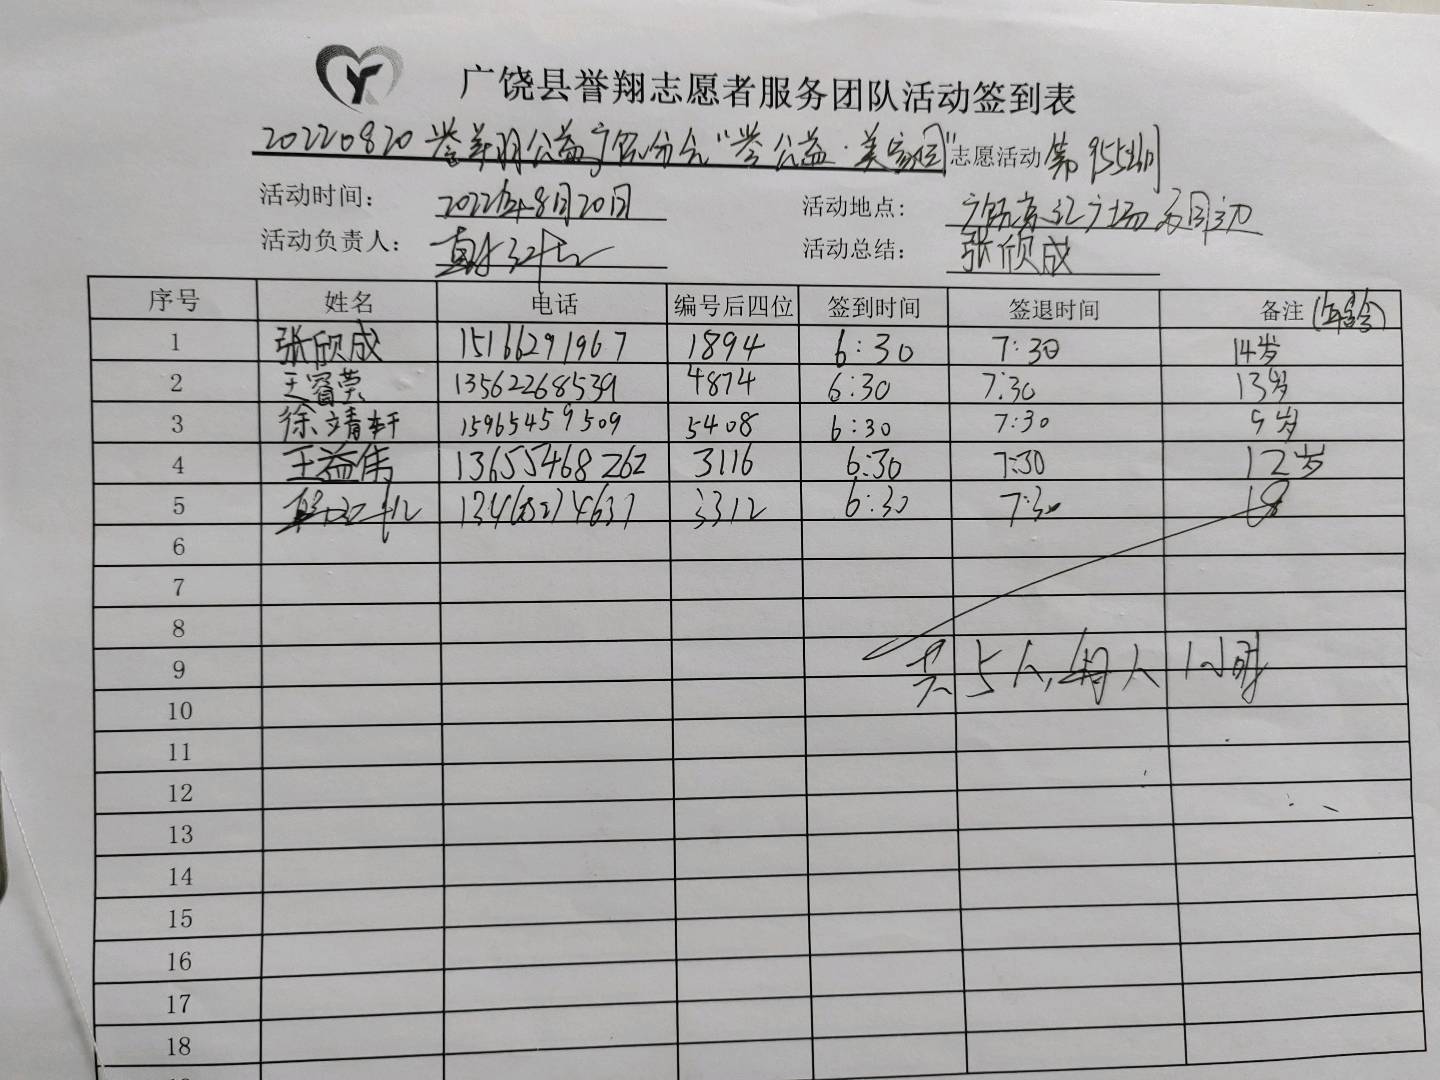 广饶县誉翔志愿者服务团队活动签到表
20220820 誉翔公益广饶分会“誉公益·美家园”志愿活动 第955期
活动时间： 2022年8月20日 活动地点： 广场及周边
活动负责人： 活动总结： 张欣成
序号 姓名 电话 编号后四位 签到时间 签退时间 备注 (年龄)
1 张欣成 15166291967 1894 6:30 7:30 14岁
2 王睿莹 13562268539 4874 6:30 7:30 13岁
3 徐靖轩 15965459509 5408 6:30 7:30 9岁
4 王益伟 13655468262 3116 6:30 7:30 12岁
5 3312 6:30 7:30
6
7
8
9 共5人,每人1小时
10
11
12
13
14
15
16
17
18